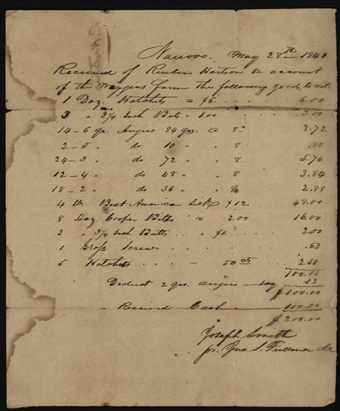 Nauvoo May 28th 1841
Received of Reuben Hartson on account
of the Wiggins farm the following goods to wit
1 Doz Hatchets @ $6 6.00
3 " 3/4 Inch Bits " 1.00 3.00
14-6 qr Augers 84 qrs @ 8 6.72
2-5 " do 10 " 8 .80
24-3 " do 72 " 8 5.76
12-4 " do 48 " 8 3.84
18-2 " do 36 " 8 2.88
4 lb Best America Silk @ $12 48.00
8 Doz Cooper Bitts @ 2.00 16.00
2 " 3/4 Inch Bitts " $1 2.00
1 Gross Screws .63
5 Hatchets 50 cts 2.50
100.13
Deduct 2 qrs augers say 13
$100.00
Received Cash 100.00
$200.00
Joseph Smith